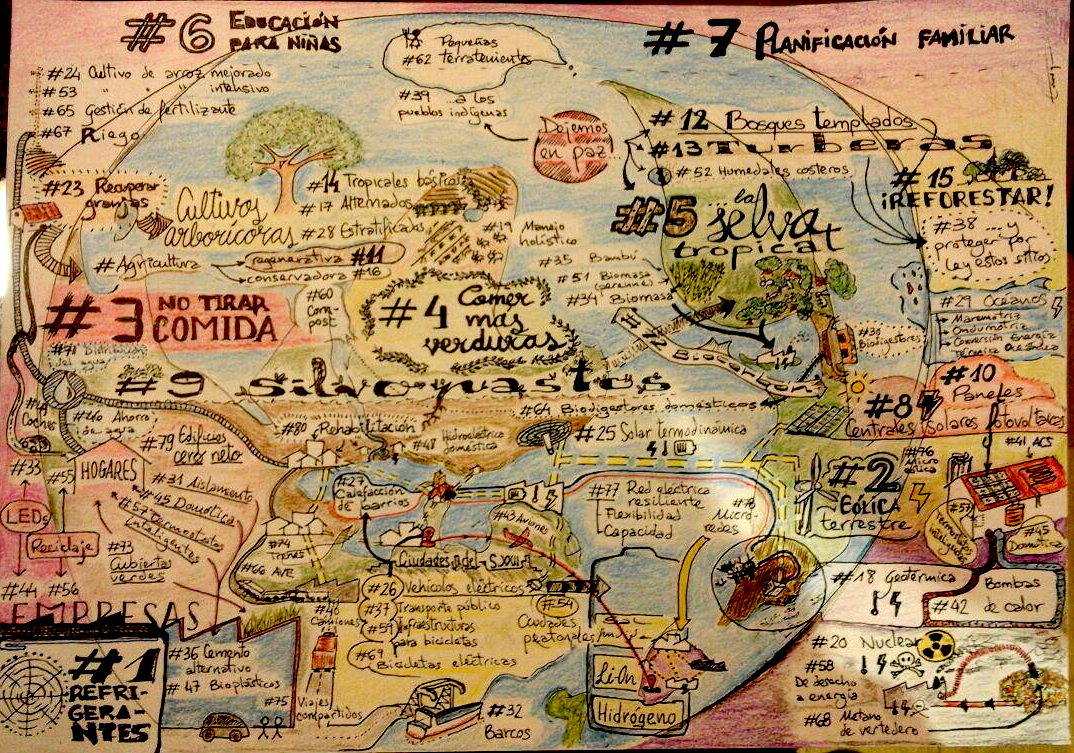 #6 EDUCACIÓN
PARA NIÑAS
#7 PLANIFICACIÓN FAMILIAR
Pequeñas
#62 terratenientes
#39 ...a los
pueblos indígenas
Dejemos
en paz...
#24 Cultivo de arroz mejorado
#53 " " " intensivo
#65 Gestión de fertilizante
#67 Riego
#23 Recuperar
granjas
#12 Bosques templados
#13 Turberas
#52 Humedales costeros
#15
¡REFORESTAR!
#38 ... y
proteger por
ley estos sitios
#5 ...la
selva
tropical
Cultivos
arborícoras
#14 Tropicales básicos
#17 Alternados
#28 Estratificados
#19 Manejo
holístico
#Agricultura
regenerativa #11
conservadora #16
#35 Bambú
#51 Biomasa
(perenne)
#34 Biomasa
#3 NO TIRAR
COMIDA
#60
Com-
post
#4 Comer
más
verduras
Biocarbón
#30
Biodigestores
#29 Océanos
Maremotriz
Undimotriz
Conversión Energía
Térmica Oceánica
#9 Silvopastos
#64 Biodigestores domésticos
#10
Paneles
Solares fotovoltaicos
#8
Centrales
#41 ACS
#46 Ahorro
de agua
Coches
#79 Edificios
cero neto
#80 Rehabilitación
#48 Hidroeléctrica
doméstica
#25 Solar termodinámica
#76
Micro
eólica
#2
EÓLICA
terrestre
#33
#55
HOGARES
#31 Aislamiento
#45 Domótica
#57 Termostatos
Inteligentes
#73
Cubiertas
verdes
LEDs
Reciclaje
#44 #56
#27
Calefacción
de barrios
#43 Aviones
#77 Red eléctrica
resiliente
Flexibilidad
Capacidad
#78
Micro-
redes
#57
Termostatos
inteligentes
#45
Domótica
#74
Trenes
#66 AVE
Ciudades del S.XXI
#26 Vehículos eléctricos
#37 Transporte público
#59 Infraestructuras
para bicicletas
#69
Bicicletas eléctricas
#54
Ciudades
peatonales
#18 Geotérmica
Bombas
#42 de calor
EMPRESAS
#40
Camiones
#1
REFRI-
GERA-
NTES
#36 Cemento
alternativo
#47 Bioplásticos
#75 Viajes
compartidos
#32
Barcos
Li-On
Hidrógeno
#20 Nuclear
#58
De desecho
a energía
#68 Metano
de vertedero